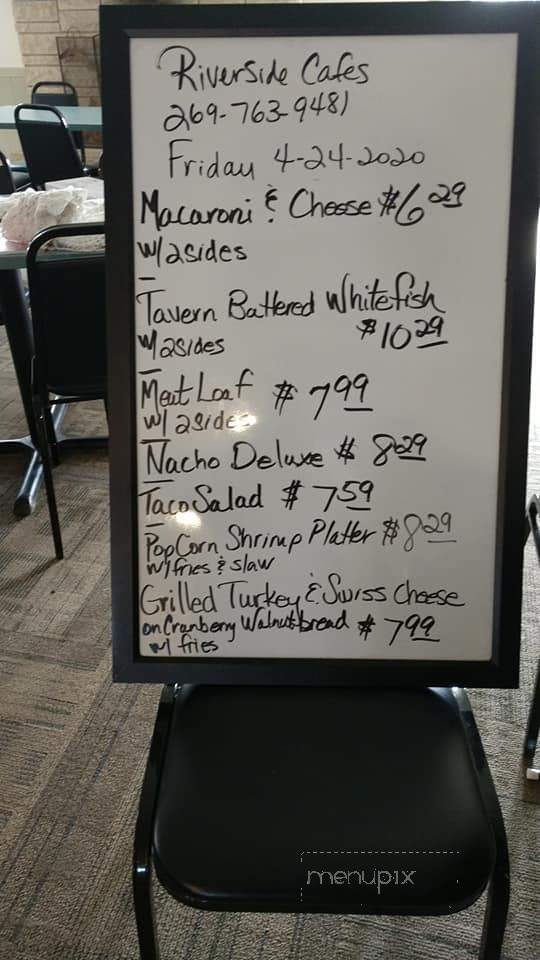 Riverside Cafes
269-763-9481
Friday 4-24-2020
Macaroni & Cheese $6 29
w/2sides
Tavern Battered Whitefish
w/2sides $10 29
Meat Loaf $ 7 99
w/ 2sides
Nacho Deluxe $ 8 29
Taco Salad $ 7 59
PopCorn Shrimp Platter $8 29
w/fries & slaw
Grilled Turkey & Swiss Cheese
on Cranberry Walnut bread $ 7 99
w/ fries
menupix